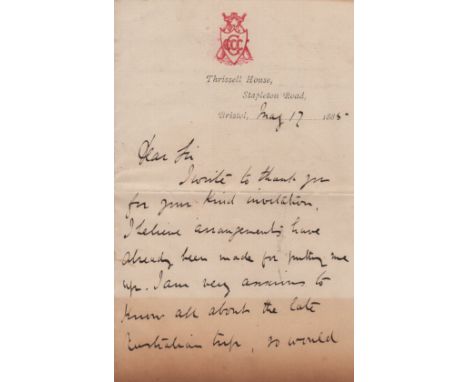 GCCC
Thrissell House,
Stapleton Road,
Bristol, May 17 1885
Dear Sir
I write to thank you
for your kind invitation.
I believe arrangements have
already been made for putting me
up. I am very anxious to
know all about the late
Australian trip, so would